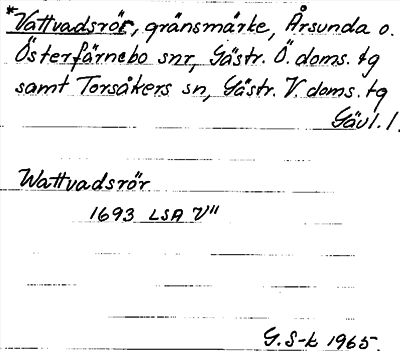 *Vattvadsrör, gränsmärke, Årsunda o.
Österfärnebo snr, Gästr. Ö. doms. tg
samt Torsåkers sn, Gästr. V. doms. tg
Gävl. l.
Wattvadsrör
1693 LSA V"
G. S-k 1965.